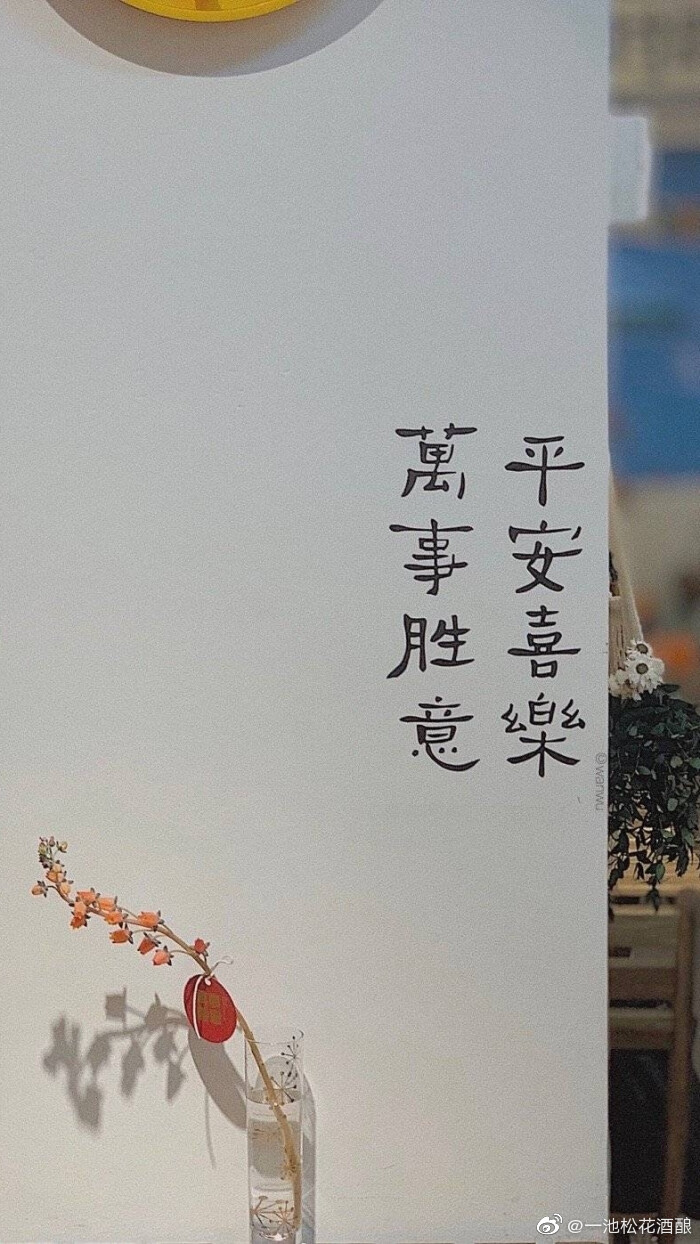 平安喜樂
萬事胜意
@wanwu
@一池松花酒酿